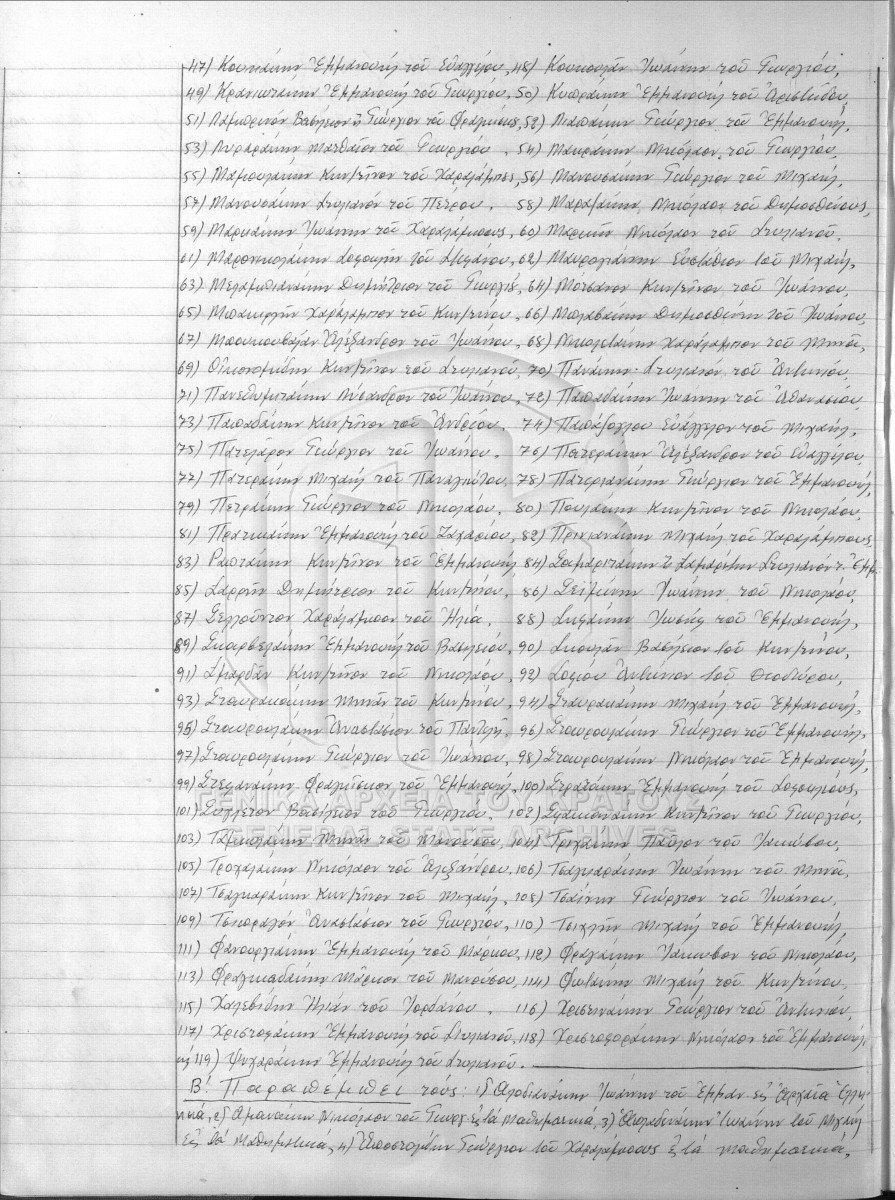 47) Κουκάκην Ἐμμανουὴλ τοῦ Εὐαγγέλου, 48) Κουκουλᾶν Ἰωάννην τοῦ Γεωργίου,
49) Κρανιωτάκην Ἐμμανουὴλ τοῦ Γεωργίου, 50) Κυπράκην Ἐμμανουὴλ τοῦ Ἀριστείδου,
51) Λαμπρινὸν Βασίλειον ἢ Γεώργιον τοῦ Φραγκίσκου, 52) Λιαπάκην Γεώργιον τοῦ Ἐμμανουήλ,
53) Λυραράκην Ματθαῖον τοῦ Γεωργίου, 54) Μακράκην Νικόλαον τοῦ Γεωργίου,
55) Μαμουλάκην Κων/τῖνον τοῦ Χαραλάμπους, 56) Μανουσάκην Γεώργιον τοῦ Μιχαήλ,
57) Μανουσάκην Στυλιανὸν τοῦ Πέτρου, 58) Μαραγάκην Νικόλαον τοῦ Δημοσθένους,
59) Μαρκάκην Ἰωάννην τοῦ Χαραλάμπους, 60) Μαρκῆν Νικόλαον τοῦ Στυλιανοῦ,
61) Μαρονικολάκην Σοφοκλῆν τοῦ Στεφάνου, 62) Μαυρογιάννην Εὐστάθιον τοῦ Μιχαήλ,
63) Μελαμπιανάκην Δημήτριον τοῦ Γεωργίου, 64) Μότσανον Κων/τῖνον τοῦ Ἰωάννου,
65) Μπακιρτζῆν Χαράλαμπον τοῦ Κων/τίνου, 66) Μπλαβάκην Δημοσθένην τοῦ Ἰωάννου,
67) Μπουκουβάλαν Ἀλέξανδρον τοῦ Ἰωάννου, 68) Νικολετάκην Χαράλαμπον τοῦ Μηνᾶ,
69) Οἰκονομίδην Κων/τῖνον τοῦ Στυλιανοῦ, 70) Πανάκην Στυλιανὸν τοῦ Ἀντωνίου,
71) Πανεθυμιτάκην Λύσανδρον τοῦ Ἰωάννου, 72) Παπαδάκην Ἰωάννην τοῦ Ἀθανασίου,
73) Παπαδάκην Κων/τῖνον τοῦ Ἀνδρέου, 74) Παπάζογλου Εὐάγγελον τοῦ Μιχαήλ,
75) Πατελάρον Γεώργιον τοῦ Ἰωάννου, 76) Πατεράκην Ἀλέξανδρον τοῦ Εὐαγγέλου,
77) Πατεράκην Μιχαὴλ τοῦ Παναγιώτου, 78) Πατεριανάκην Γεώργιον τοῦ Ἐμμανουήλ,
79) Πετράκην Γεώργιον τοῦ Νικολάου, 80) Πουλάκην Κων/τῖνον τοῦ Νικολάου,
81) Πρατικάκην Ἐμμανουὴλ τοῦ Ζαχαρίου, 82) Πρινιανάκην Μιχαὴλ τοῦ Χαραλάμπους
83) Ραπτάκην Κων/τῖνον τοῦ Ἐμμανουήλ, 84) Σαμαριτάκην ἢ Σαμαρίτην Στυλιανὸν τ. Ἐμμ.
85) Σαρρῆν Δημήτριον τοῦ Κων/τίνου, 86) Σεϊμένην Ἰωάννην τοῦ Νικολάου,
87) Σελλούντον Χαράλαμπον τοῦ Ἠλία, 88) Σηφάκην Ἰωσὴφ τοῦ Ἐμμανουήλ,
89) Σκαρβελάκην Ἐμμανουὴλ τοῦ Βασιλείου, 90) Σκουλᾶν Βασίλειον τοῦ Κων/τίνου,
91) Σμαρδᾶν Κων/τῖνον τοῦ Νικολάου, 92) Σοφιοῦ Ἀντώνιον τοῦ Θεοδώρου,
93) Σταυρακάκην Μηνᾶν τοῦ Κων/τίνου, 94) Σταυρακάκην Μιχαὴλ τοῦ Ἐμμανουήλ,
95) Σταυρουλάκην Ἀναστάσιον τοῦ Παντελῆ, 96) Σταυρουλάκην Γεώργιον τοῦ Ἐμμανουήλ,
97) Σταυρουλάκην Γεώργιον τοῦ Ἰωάννου, 98) Σταυρουλάκην Νικόλαον τοῦ Ἐμμανουήλ,
99) Στεφανάκην Φραγκίσκον τοῦ Ἐμμανουήλ, 100) Στρατάκην Ἐμμανουὴλ τοῦ Σοφοκλέους,
101) Σύλλετον Βασίλειον τοῦ Γεωργίου, 102) Σφακιανάκην Κων/τῖνον τοῦ Γεωργίου,
103) Μηνᾶν τοῦ Μανούσου, 104) Τριχάκην Παῦλον τοῦ Ἰακώβου,
105) Τροχαλάκην Νικόλαον τοῦ Ἀλεξάνδρου, 106) Τσαγκαράκην Ἰωάννην τοῦ Μηνᾶ,
107) Τσαγκαράκην Κων/τῖνον τοῦ Μιχαήλ, 108) Τσαΐνην Γεώργιον τοῦ Ἰωάννου,
109) Ἀναστάσιον τοῦ Γεωργίου, 110) Τσιχλῆν Μιχαὴλ τοῦ Ἐμμανουήλ,
111) Φανουργιάκην Ἐμμανουὴλ τοῦ Μάρκου, 112) Φραγάκην Ἰάκωβον τοῦ Νικολάου,
113) Φραγκιαδάκην Μᾶρκον τοῦ Μανούσου, 114) Φωτάκην Μιχαὴλ τοῦ Κων/τίνου,
115) Χαλεβίδην Ἠλίαν τοῦ Ἰορδάνου, 116) Χριστινάκην Γεώργιον τοῦ Ἀντωνίου,
117) Χριστοφάκην Ἐμμανουὴλ τοῦ Στυλιανοῦ, 118) Χριστοφοράκην Νικόλαον τοῦ Ἐμμανουὴλ
καὶ 119) Ψυχαράκην Ἐμμανουὴλ τοῦ Στυλιανοῦ.
Β΄. Παραπέμπει τούς: 1) Ἰωάννην τοῦ Ἐμμαν. εἰς Ἀρχαῖα Ἑλλη-
νικά, 2) Ἀμανάκην Νικόλαον τοῦ Γεωργ. εἰς τὰ Μαθηματικά, 3) Ἰωάννην τοῦ Μιχαὴλ
εἰς τὰ Μαθηματικά, 4) Ἀποστολάκην Γεώργιον τοῦ Χαραλάμπους εἰς τὰ Μαθηματικά,
ΓΕΝΙΚΑ ΑΡΧΕΙΑ ΤΟΥ ΚΡΑΤΟΥΣ
GENERAL STATE ARCHIVES